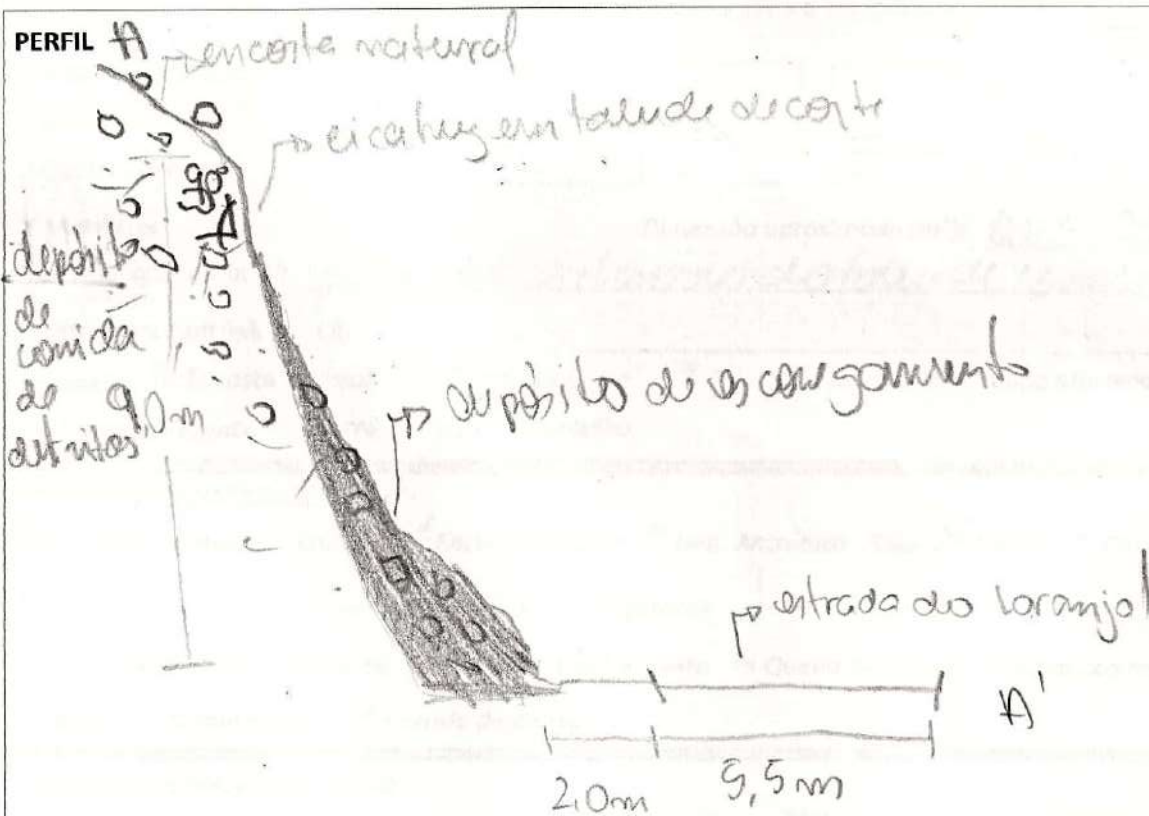 PERFIL A
encosta natural
cicatriz em talude de corte
90°
depósito
de
corrida
de
detritos
9,0m
depósito de escorregamento
estrada do laranjal
A'
2,0m
5,5m